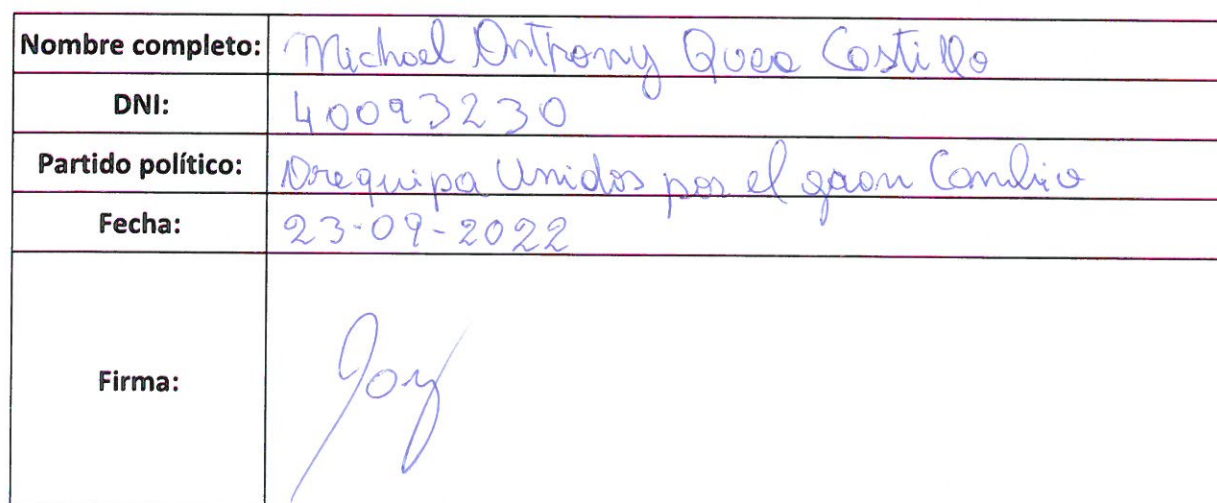 Nombre completo: Michael Anthony Quea Castillo
DNI: 40093230
Partido político: Arequipa Unidos por el gran Cambio
Fecha: 23-09-2022
Firma: